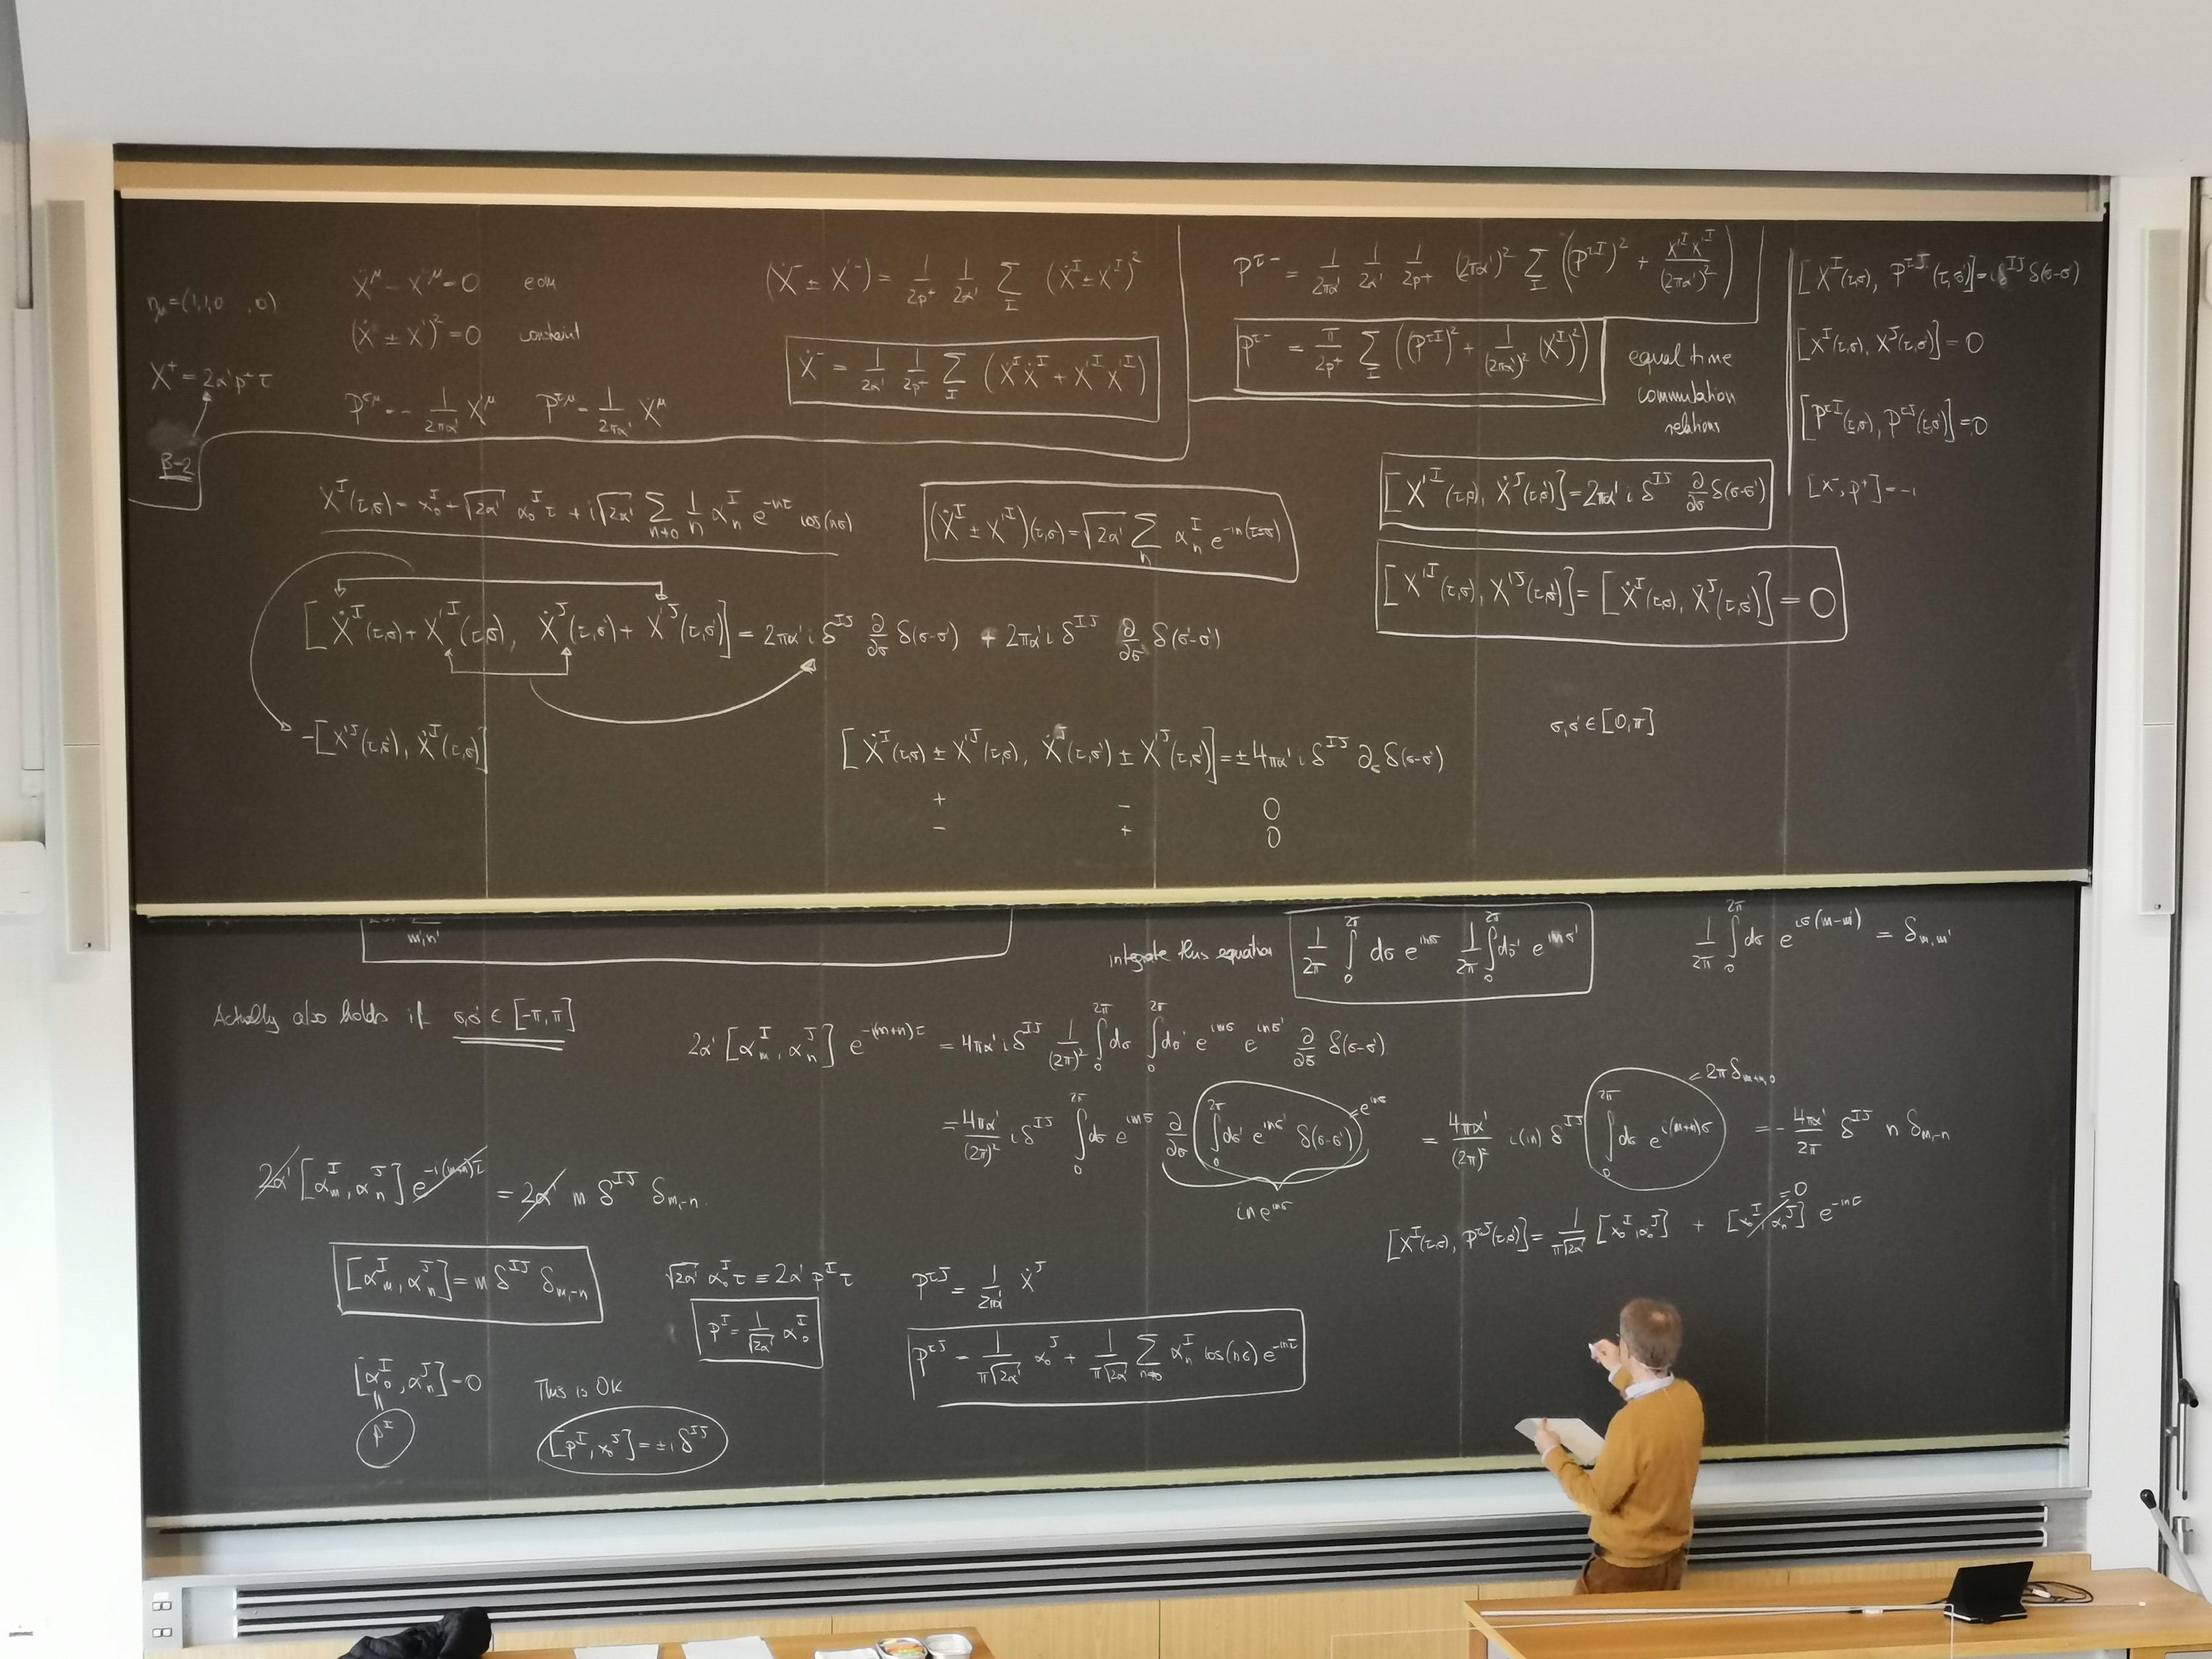 η_μ = (1,1,0 ,0)
X⁺ = 2α'p⁺τ
β=2
Ẍ^μ − X''^μ = 0 eom
(Ẋ ± X')² = 0 constraint
P^{σμ} = − 1/(2πα') X'^μ P^{τμ} = 1/(2πα') Ẋ^μ
(Ẋ⁻ ± X'⁻) = 1/(2p⁺) 1/(2α') Σ_I (Ẋ^I ± X'^I)²
Ẋ⁻ = 1/(2α') 1/(2p⁺) Σ_I (Ẋ^I Ẋ^I + X'^I X'^I)
P^{τ−} = 1/(2πα') 1/(2α') 1/(2p⁺) (2πα')² Σ_I ((P^{τI})² + X'^I X'^I/(2πα')²)
P^{τ−} = π/(2p⁺) Σ_I ((P^{τI})² + 1/(2πα')² (X'^I)²)
equal time
commutation
relations
[X^I(τ,σ), P^{τJ}(τ,σ')] = i δ^{IJ} δ(σ−σ')
[X^I(τ,σ), X^J(τ,σ')] = 0
[P^{τI}(τ,σ), P^{τJ}(τ,σ')] = 0
[x⁻, p⁺] = −i
X^I(τ,σ) = x₀^I + √(2α') α₀^I τ + i√(2α') Σ_{n≠0} 1/n α_n^I e^{−inτ} cos(nσ)
(Ẋ^I ± X'^I)(τ,σ) = √(2α') Σ_n α_n^I e^{−in(τ±σ)}
[X'^I(τ,σ), Ẋ^J(τ,σ')] = 2πα' i δ^{IJ} ∂/∂σ δ(σ−σ')
[X'^I(τ,σ), X'^J(τ,σ')] = [Ẋ^I(τ,σ), Ẋ^J(τ,σ')] = 0
[Ẋ^I(τ,σ) + X'^I(τ,σ), Ẋ^J(τ,σ') + X'^J(τ,σ')] = 2πα' i δ^{IJ} ∂/∂σ δ(σ−σ') + 2πα' i δ^{IJ} ∂/∂σ δ(σ'−σ')
−[X'^J(τ,σ'), Ẋ^I(τ,σ)]
σ,σ' ∈ [0,π]
[Ẋ^I(τ,σ) ± X'^J(τ,σ), Ẋ^J(τ,σ') ± X'^J(τ,σ')] = ±4πα' i δ^{IJ} ∂_σ δ(σ−σ')
+ − 0
− + 0
m',n'
integrate this equation 1/2π ∫₀^{2π} dσ e^{imσ} 1/2π ∫₀^{2π} dσ' e^{inσ'}
1/2π ∫₀^{2π} dσ e^{iσ(m−m')} = δ_{m,m'}
Actually also holds if σ,σ' ∈ [−π,π]
2α' [α_m^I, α_n^J] e^{−i(m+n)τ} = 4πα' i δ^{IJ} 1/(2π)² ∫₀^{2π} dσ ∫₀^{2π} dσ' e^{imσ} e^{inσ'} ∂/∂σ δ(σ−σ')
= 4πα'/(2π)² i δ^{IJ} ∫₀^{2π} dσ e^{imσ} ∂/∂σ ∫₀^{2π} dσ' e^{inσ'} δ(σ−σ') = e^{inσ}
in e^{inσ}
= 4πα'/(2π)² i(in) δ^{IJ} ∫₀^{2π} dσ e^{i(m+n)σ} = 2π δ_{m+n,0}
= − 4πα'/2π δ^{IJ} n δ_{m,−n}
2α' [α_m^I, α_n^J] e^{−i(m+n)τ} = 2α' m δ^{IJ} δ_{m,−n}
[α_m^I, α_n^J] = m δ^{IJ} δ_{m,−n}
√(2α') α₀^I τ ≡ 2α' p^I τ
p^I = 1/√(2α') α₀^I
P^{τJ} = 1/(2πα') Ẋ^J
P^{τJ} = 1/(π√(2α')) α₀^J + 1/(π√(2α')) Σ_{n≠0} α_n^I cos(nσ) e^{−inτ}
[X^I(τ,σ), P^{τJ}(τ,σ')] = 1/(π√(2α')) [x₀^I, α₀^J] + [x₀^I, α_n^J] e^{−inτ}
= 0
[α₀^I, α_n^J] = 0
p^I
This is OK
[p^I, x₀^J] = ±i δ^{IJ}